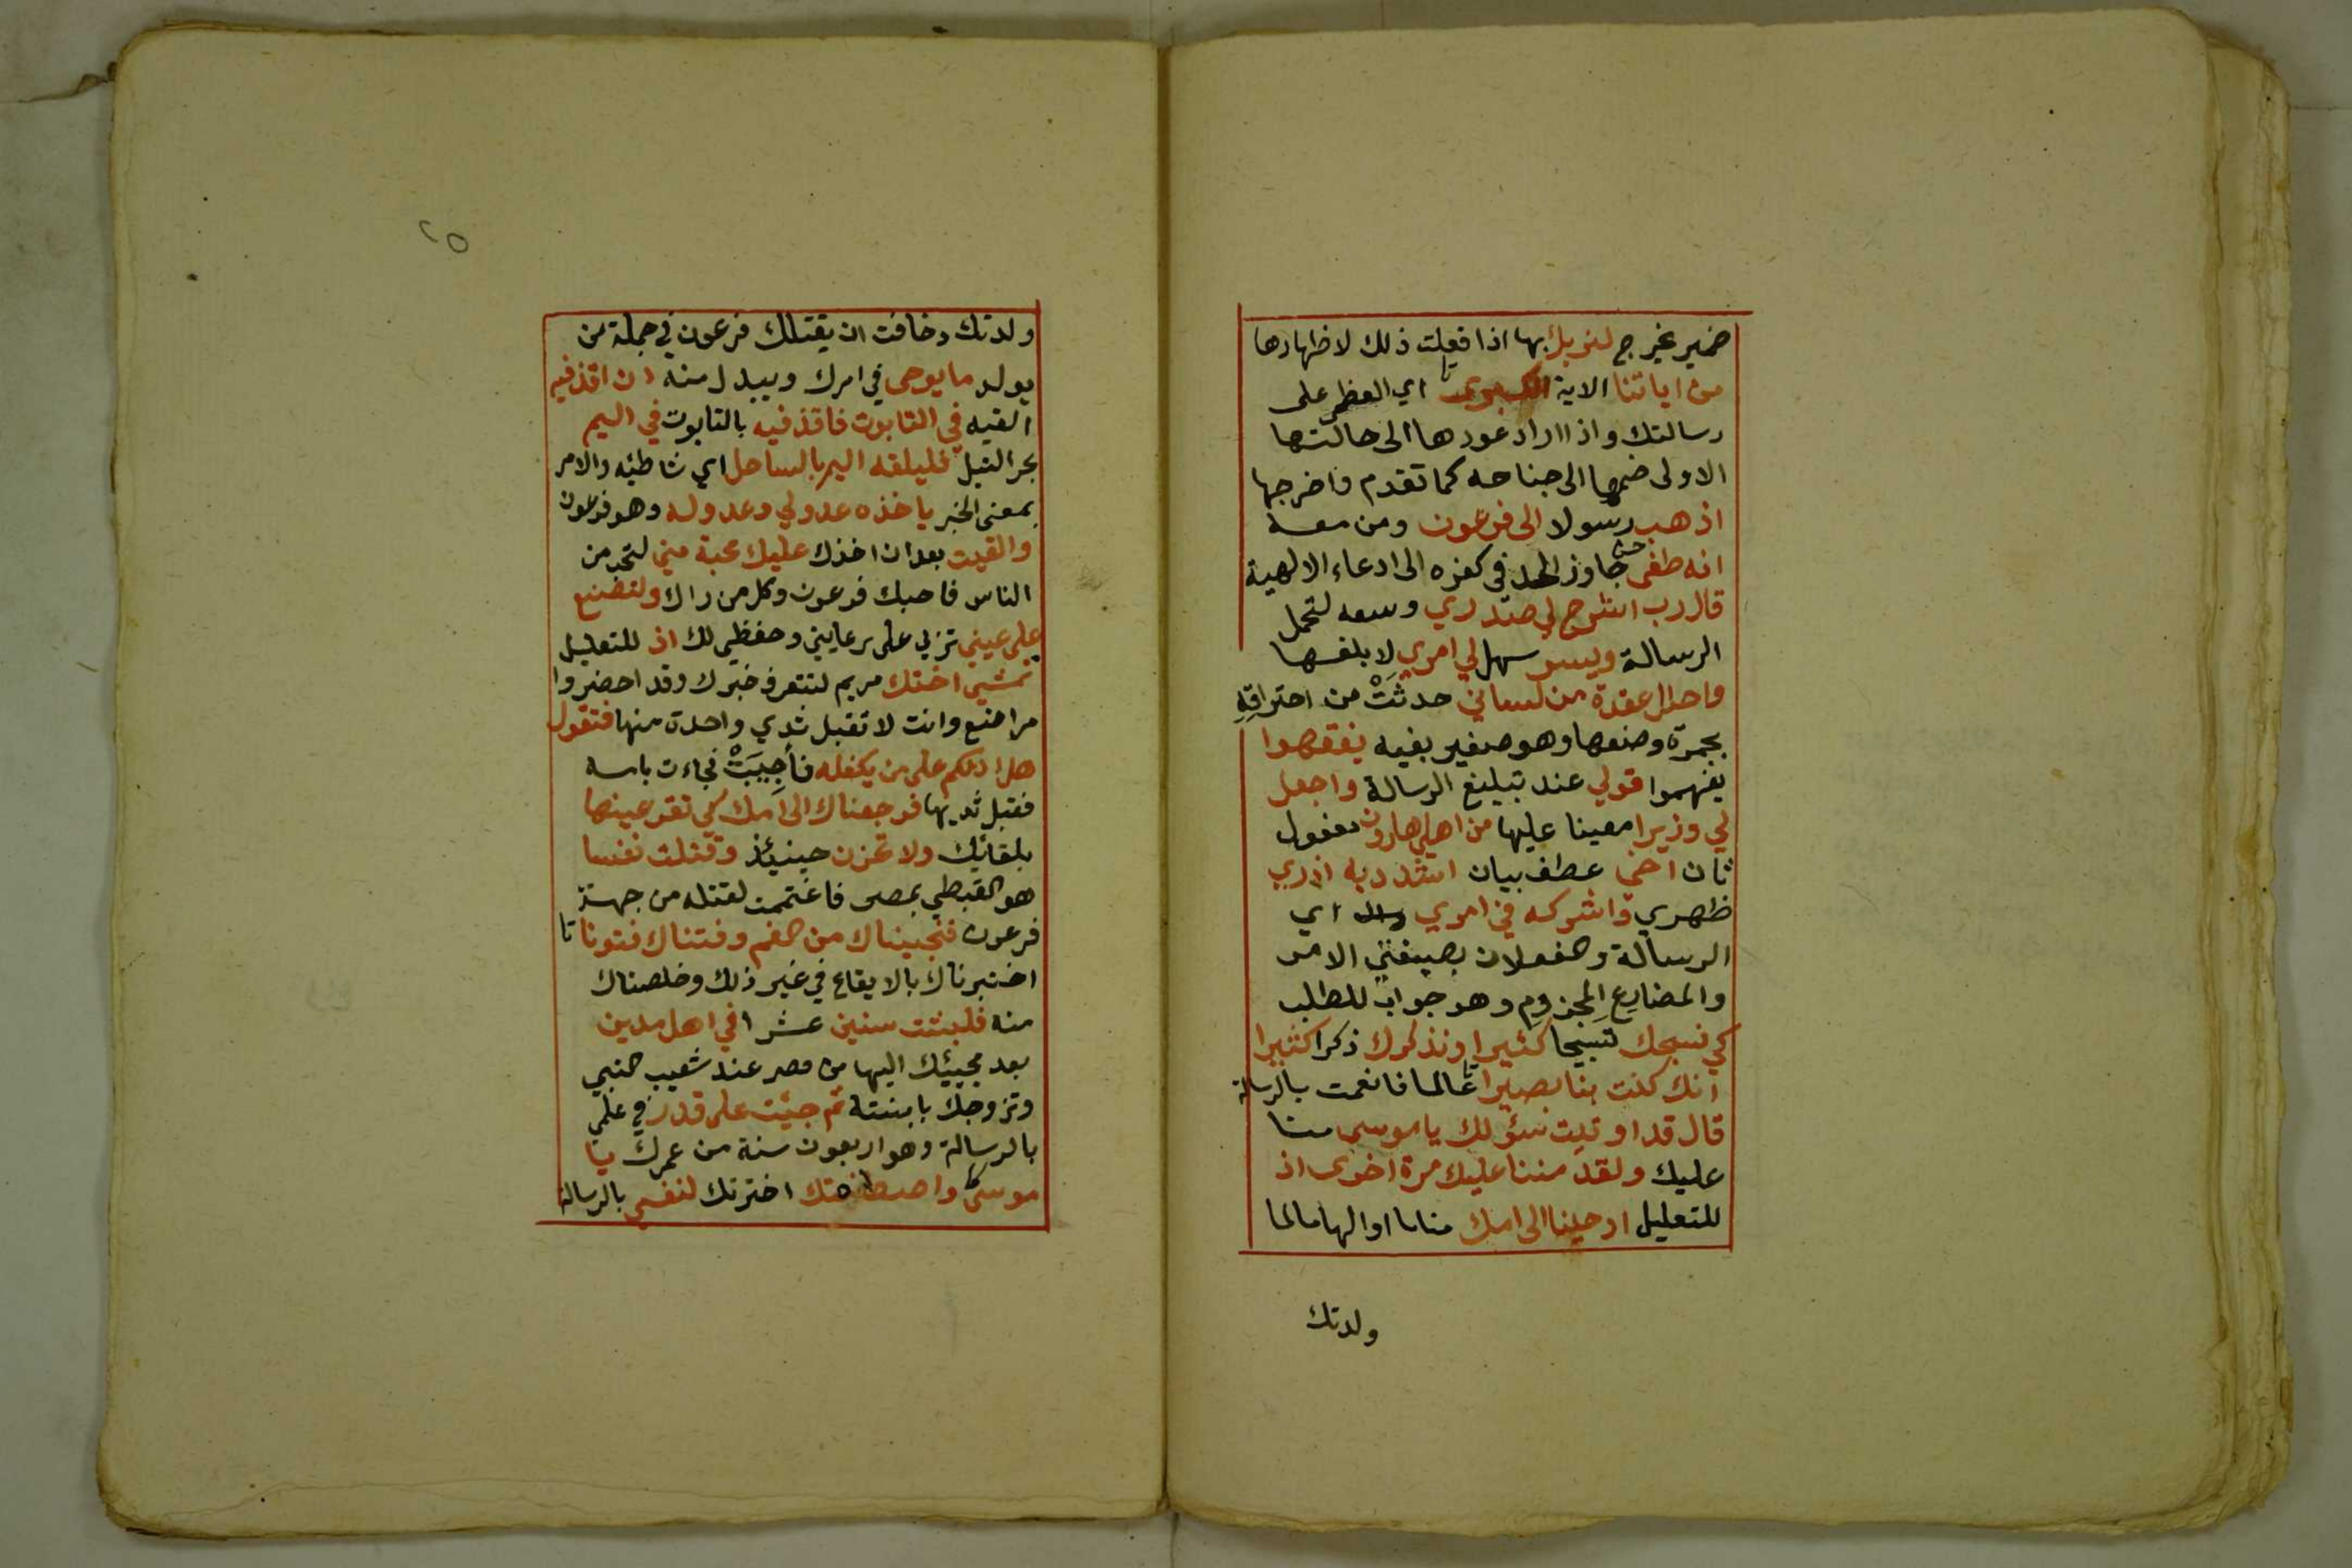 ضمير يخرج لنريك بها اذا فعلت ذلك لاظهارها
من اياتنا الاية الكبرى اي العظمى على
رسالتك واذا اراد عودها الى حالتها
الاولى ضمها الى جناحه كما تقدم واخرجها
اذهب رسولا الى فرعون ومن معه
انه طغى جاوز الحد في كفره الى ادعاء الالهية
قال رب اشرح لي صدري وسعه لتحمل
الرسالة ويسر سهل لي امري لابلغها
واحلل عقدة من لساني حدثَتْ من احتراقِهِ
بجمرة وضعها وهو صغير بفيه يفقهوا
يفهموا قولي عند تبليغ الرسالة واجعل
لي وزيرا معينا عليها من اهلي هارون مفعول
ثان اخي عطف بيان اشدد به ازري
ظهري واشركه في امري اي
الرسالة والفعلان بصيغتي الامر
والمضارع المجزوم وهو جواب للطلب
كي نسبحك تسبيحا كثيرا ونذكرك ذكرا كثيرا
انك كنت بنا بصيرا عالما فانعمت بالرسالة
قال قد اوتيت سؤلك يا موسى منا
عليك ولقد مننا عليك مرة اخرى اذ
للتعليل اوحينا الى امك مناما او الهاما لما
ولدتك
٢٥
ولدتك وخافت ان يقتلك فرعون في جملة من
يولد ما يوحى في امرك ويبدل منه ان اقذفيه
القيه في التابوت فاقذفيه بالتابوت في اليم
بحر النيل فليلقه اليم بالساحل اي شاطئه والامر
بمعنى الخبر ياخذه عدو لي وعدو له وهو فرعون
والقيت بعد ان اخذك عليك محبة مني لتحب من
الناس فاحبك فرعون وكل من راك ولتصنع
على عيني تربى على رعايتي وحفظي لك اذ للتعليل
تمشي اختك مريم لتتعرف خبرك وقد احضروا
مراضع وانت لا تقبل ثدي واحدة منها فتقول
هل ادلكم على من يكفله فأُجِيبَتْ فجاءت بامه
فقبل ثديها فرجعناك الى امك كي تقر عينها
بلقائك ولا تحزن حينئذ وقتلت نفسا
هو القبطي بمصر فاغتممت لقتله من جهة
فرعون فنجيناك من الغم وفتناك فتونا
اختبرناك بالايقاع في غير ذلك وخلصناك
منه فلبثت سنين عشرا في اهل مدين
بعد مجيئك اليها من مصر عند شعيب النبي
وتزوجك بابنته ثم جئت على قدر في علمي
بالرسالة وهو اربعون سنة من عمرك يا
موسى واصطنعتك اخترتك لنفسي بالرسالة